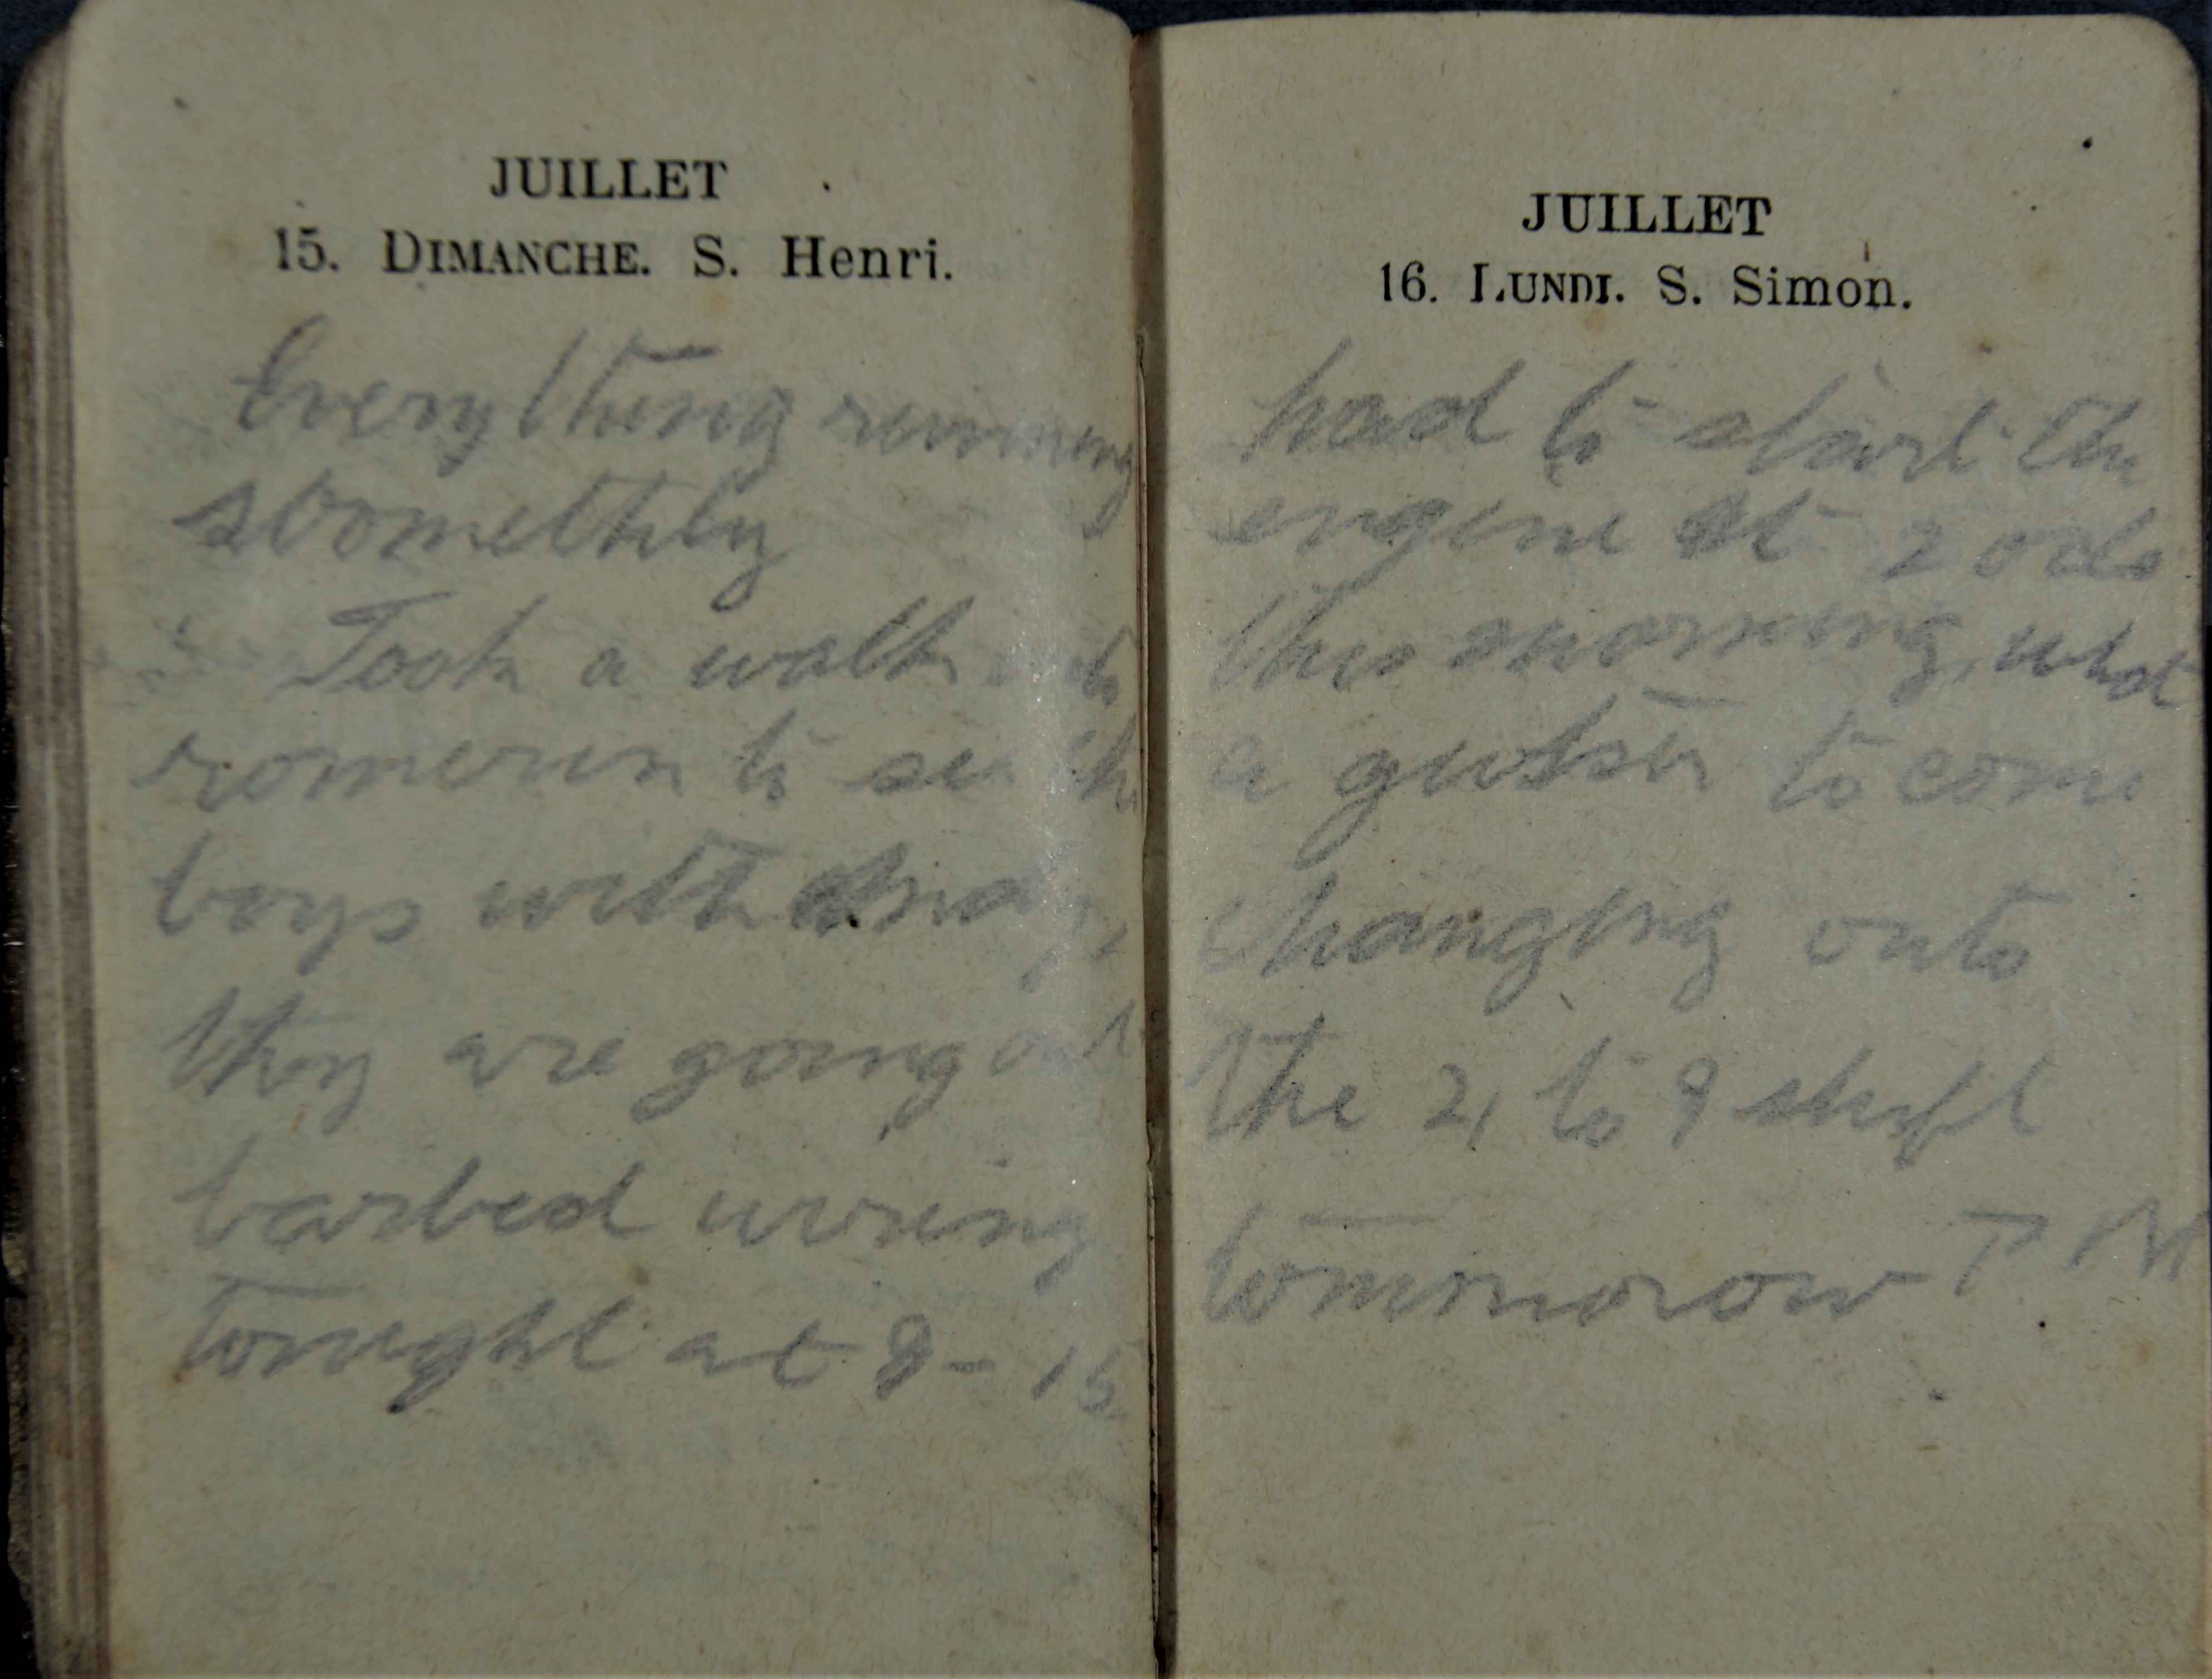 JUILLET
15. DIMANCHE. S. Henri.
Everything running
stomethly
Took a walk
romerin to see the
boys with
they are going out
barbed wiring
tonight at 8-15
JUILLET
16. LUNDI. S. Simon.
had to start the
engine at 2 oclo
this morning, what
a gutser to come
changing onto
the 2 to 9 shift
tommorow P. M